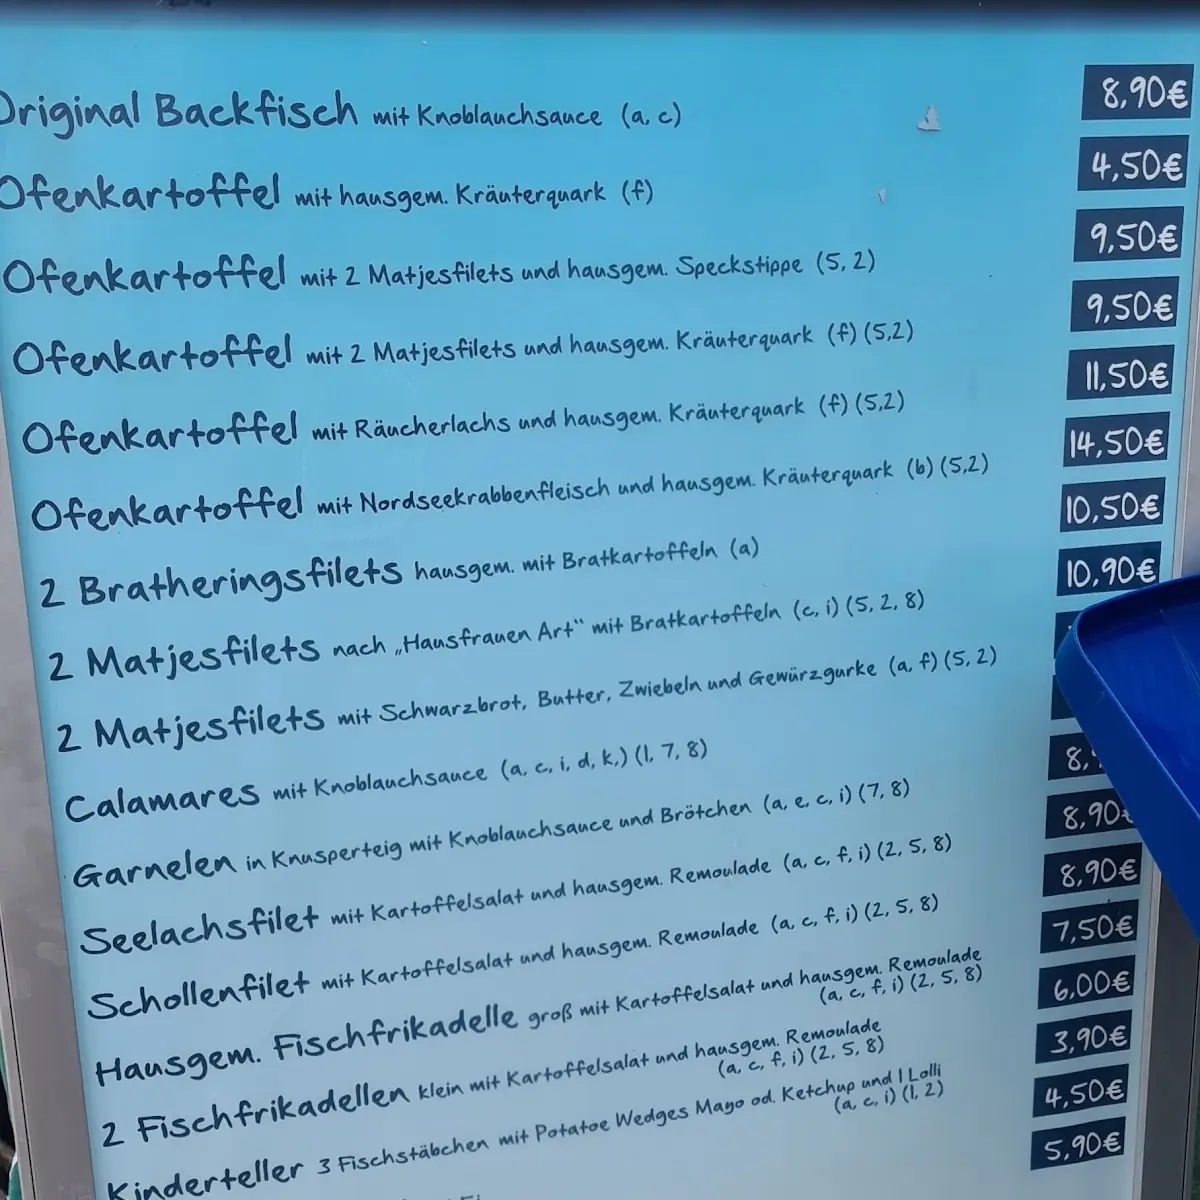 Original Backfisch mit Knoblauchsauce (a, c) 8,90€
Ofenkartoffel mit hausgem. Kräuterquark (f) 4,50€
Ofenkartoffel mit 2 Matjesfilets und hausgem. Speckstippe (5, 2) 9,50€
Ofenkartoffel mit 2 Matjesfilets und hausgem. Kräuterquark (f) (5,2) 9,50€
Ofenkartoffel mit Räucherlachs und hausgem. Kräuterquark (f) (5,2) 11,50€
Ofenkartoffel mit Nordseekrabbenfleisch und hausgem. Kräuterquark (b) (5,2) 14,50€
2 Bratheringsfilets hausgem. mit Bratkartoffeln (a) 10,50€
2 Matjesfilets nach „Hausfrauen Art“ mit Bratkartoffeln (c, i) (5, 2, 8) 10,90€
2 Matjesfilets mit Schwarzbrot, Butter, Zwiebeln und Gewürzgurke (a, f) (5, 2)
Calamares mit Knoblauchsauce (a, c, i, d, k,) (1, 7, 8)
Garnelen in Knusperteig mit Knoblauchsauce und Brötchen (a, e, c, i) (7, 8) 8,
Seelachsfilet mit Kartoffelsalat und hausgem. Remoulade (a, c, f, i) (2, 5, 8) 8,90€
Schollenfilet mit Kartoffelsalat und hausgem. Remoulade (a, c, f, i) (2, 5, 8) 8,90€
Hausgem. Fischfrikadelle groß mit Kartoffelsalat und hausgem. Remoulade 7,50€
(a, c, f, i) (2, 5, 8)
2 Fischfrikadellen klein mit Kartoffelsalat und hausgem. Remoulade 6,00€
(a, c, f, i) (2, 5, 8)
Kinderteller 3 Fischstäbchen mit Potatoe Wedges Mayo od. Ketchup und 1 Lolli 3,90€
(a, c, i) (1, 2)
4,50€
5,90€